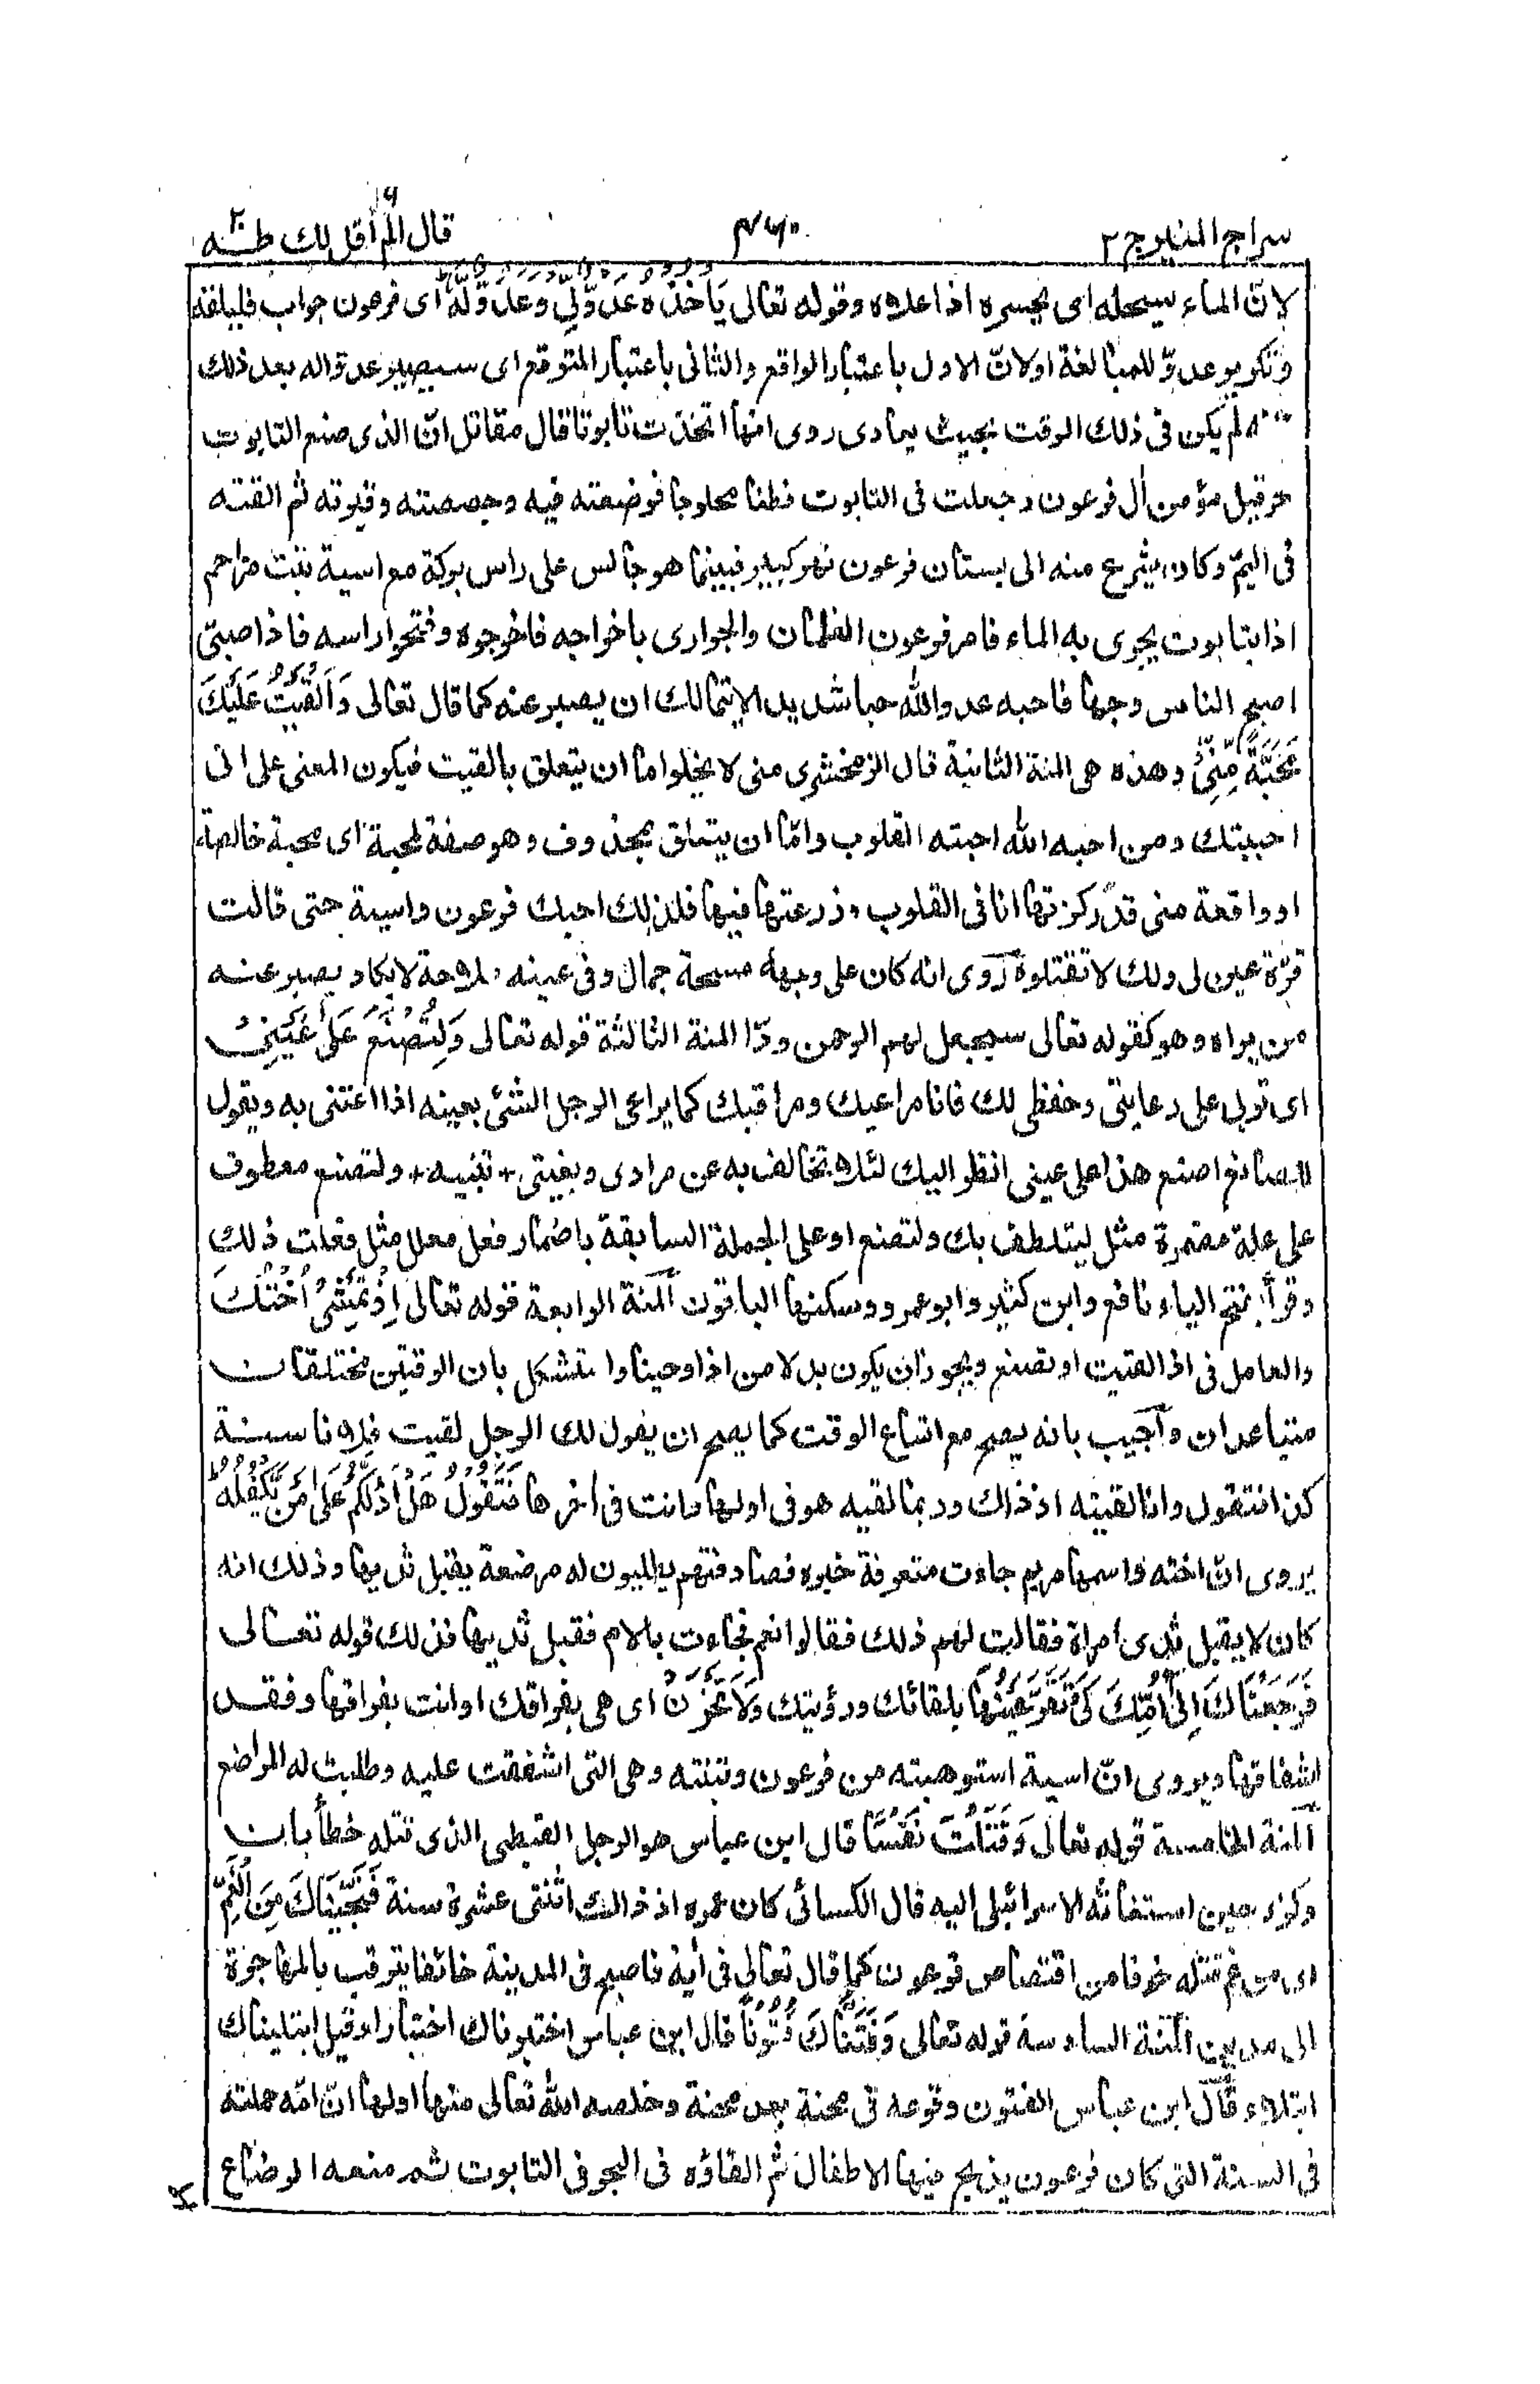 سراج المنير ج ٢
٤٦٠
قال الم ١٦ اقل لك طه ٢٠
لانّ الماء يسحله اى يحسره اذا علاه وقوله تعالى يَأخُذْهُ عَدُوٌّ لِّي وَعَدُوٌّ لَّهُ اى فرعون جواب فليلقه
وتكرير عدوّ للمبالغة اولانّ الاول باعتبار الواقع والثانى باعتبار المتوقع اى سيصير عدوّاله بعد ذلك
لم يكن فى ذلك الوقت بحيث يعادى روى انها اتخذت تابوتا قال مقاتل انّ الذى صنع التابوت
حزقيل مؤمن اٰل فرعون وجعلت فى التابوت قطنا محلوجا فوضعته فيه وجصصته وقيرته ثم القته
فى اليمّ وكان يشرع منه الى بستان فرعون نهر كبير فبينما هو جالس على راس بركة مع اسية بنت مزاحم
اذا بتابوت يجرى به الماء فامر فرعون الغلمان والجوارى باخراجه فاخرجوه وفتحوا راسه فاذا صبىّ
اصبح الناس وجها فاحبه عدوالله حبا شديدا لايتمالك ان يصبر عنه كما قال تعالى وَاَلْقَيْتُ عَلَيْكَ
مَحَبَّةً مِّنِّىْ وهذه هى المنة الثانية قال الزمخشرى منى لا يخلواما ان يتعلق بالقيت فيكون المعنى على انى
احببتك ومن احبه الله احبته القلوب وامّا ان يتعلق بمحذوف وهو صفة لمحبة اى محبة خالصة
او واقعة منى قد ركزتها انا فى القلوب وزرعتها فيها فلذلك احبك فرعون واسية حتى قالت
قرّة عين لى ولك لا تقتلوه روى انه كان على وجهه مسحة جمال وفى عينه ملاحة لايكاد يصبر عنه
من يراه وهو كقوله تعالى سيجعل لهم الرحمن ودّا المنة الثالثة قوله تعالى وَلِتُصْنَعَ عَلٰى عَيْنِىْ
اى تربى على رعايتى وحفظى لك فانا مراعيك ومراقبك كما يراعى الرجل الشئ بعينه اذا اعتنى به ويقول
للصانع اصنع هذا على عينى انظر اليك لئلا تخالف به عن مرادى وبغيتى + تنبيه + ولتصنع معطوف
على علة مضمرة مثل ليتلطف بك ولتصنع اوعلى الجملة السابقة باضمار فعل معلل مثل فعلت ذلك
وقرأ بفتح الياء نافع وابن كثير وابو عمرو وسكنها الباقون المنة الرابعة قوله تعالى اِذْ تَمْشِىْ اُخْتُكَ
والعامل فى اذ القيت او تصنع ويجوز ان يكون بدلا من اذا وحينا واستشكل بان الوقتين مختلفان
متباعدان واجيب بانه يصح مع اتساع الوقت كما يصح ان يقول لك الرجل لقيت فلانا سنة
كذا فتقول وانا لقيته اذ ذاك وربما لقيه هو فى اولها وانت فى اٰخرها فَتَقُوْلُ هَلْ اَدُلُّكُمْ عَلٰى مَنْ يَّكْفُلُهُ
يروى انّ اخته واسمها مريم جاءت متعرفة خبره فصادفتهم يطلبون له مرضعة يقبل ثديها وذلك انه
كان لا يقبل ثدى امراة فقالت لهم ذلك فقالوا نعم فجاءت بالام فقبل ثديها فذلك قوله تعالى
فَرَجَعْنَاكَ اِلٰى اُمِّكَ كَىْ تَقَرَّ عَيْنُهَا بلقائك ورؤيتك وَلَا تَحْزَنَ اى هى بفراقك او انت بفراقها وفقد
اشفاقها ويروى انّ اسية استوهبته من فرعون وتبنته وهى التى اشفقت عليه وطلبت له المراضع
المنة الخامسة قوله تعالى وَقَتَلْتَ نَفْسًا قال ابن عباس هو الرجل القبطى الذى قتله خطأ بان
وكزه حين استغاثه الاسرائيلى اليه قال الكسائى كان عمره اذ ذاك اثنتى عشرة سنة فَنَجَّيْنَاكَ مِنَ الْغَمِّ
اى من غم قتله خوفا من اقتصاص فرعون كما قال تعالى فى اٰية فاصبح فى المدينة خائفا يترقب بالمهاجرة
الى مدين المنة السادسة قوله تعالى وَفَتَنَّاكَ فُتُوْنًا قال ابن عباس اختبرناك اختبارا وقيل ابتليناك
ابتلاء قال ابن عباس الفتون وقوعه فى محنة بعد محنة وخلصه الله تعالى منها اولها انّ امّه حملته
فى السنة التى كان فرعون يذبح فيها الاطفال ثم القاؤه فى البحر فى التابوت ثم منعه الرضاع